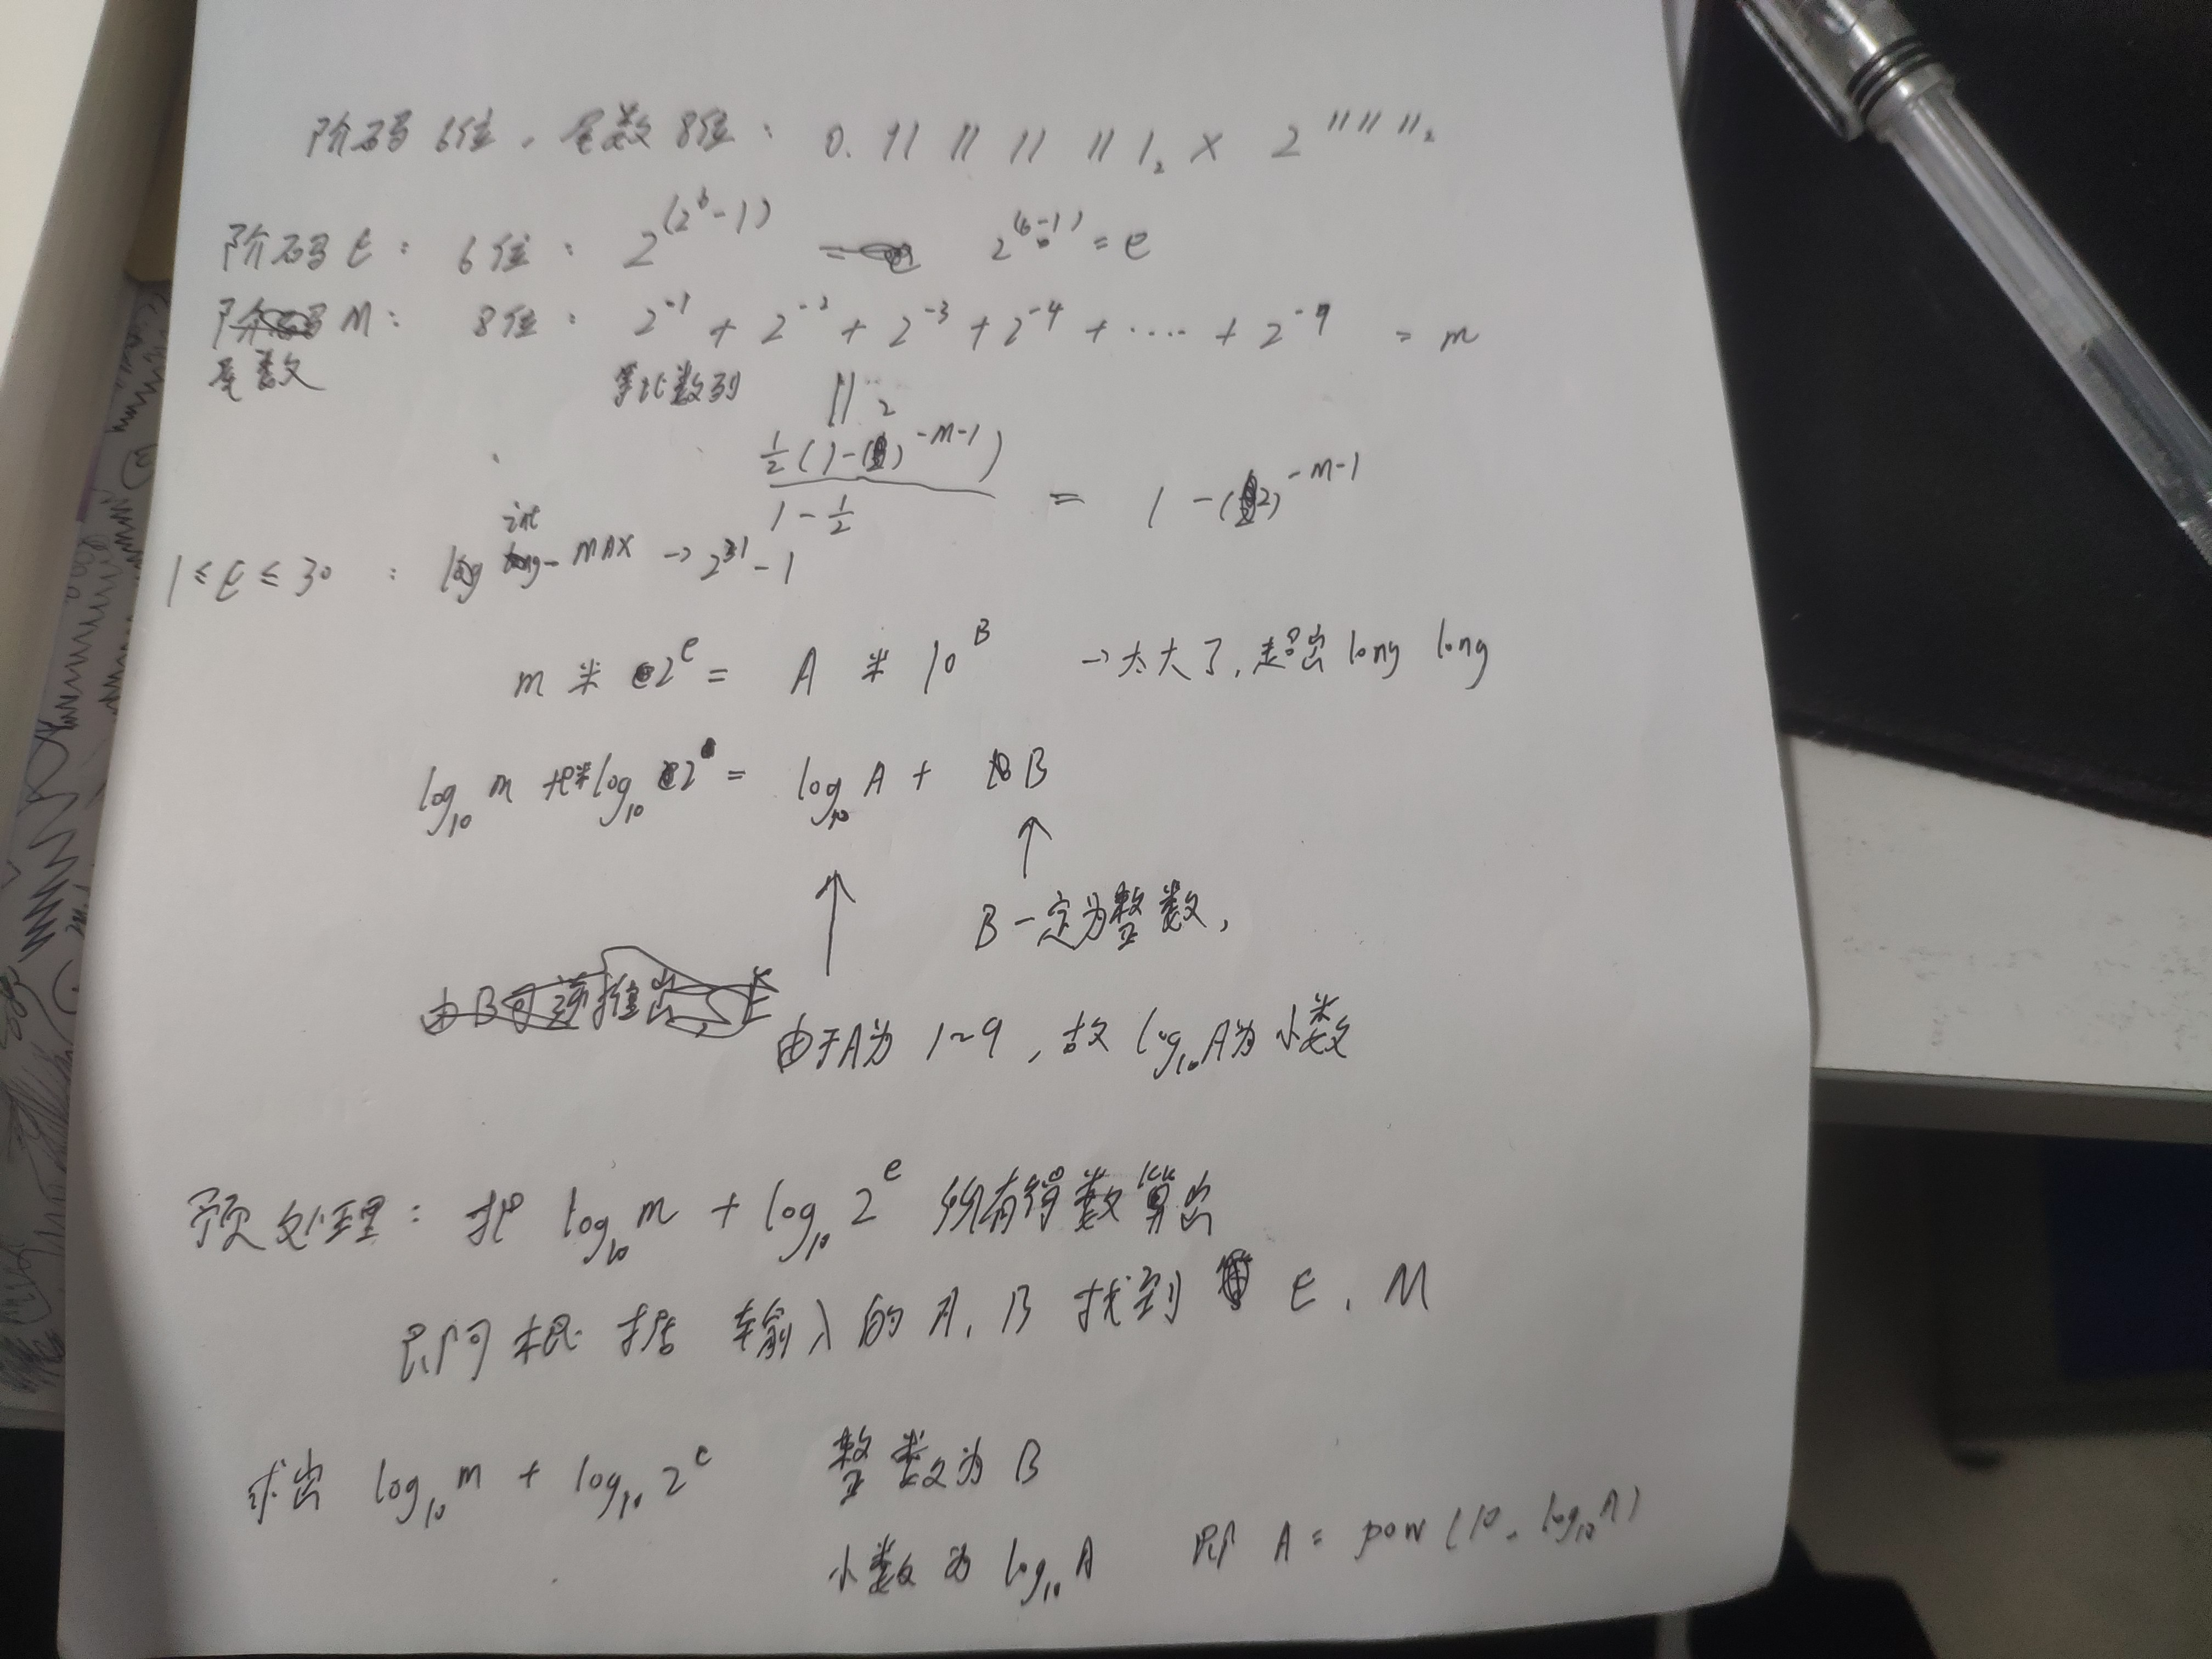 阶码6位，尾数8位： 0.11 11 11 11 1₂ × 2^111111₂
阶码E： 6位： 2^(2^6-1) = 2^(6-1) = e
M： 8位： 2^-1 + 2^-2 + 2^-3 + 2^-4 + ···· + 2^-9 = m
尾数 等比数列 || 2
½(1-( )^-M-1) / 1-½ = 1-(2)^-M-1
int
1≤E≤30 : log - MAX → 2^31-1
m * 2^e = A * 10^B → 太大了，超出 long long
log₁₀ m + log₁₀ 2^e = log₁₀ A + B
↑ ↑
B一定为整数，
由B可逆推出，E
由于A为 1~9，故 log₁₀A为小数
预处理：把 log₁₀ m + log₁₀ 2^e 所有得数算出
即可根据 输入的 A, B 找到 E, M
求出 log₁₀ m + log₁₀ 2^e 整数为 B
小数为 log₁₀ A 即 A = pow (10, log₁₀A)